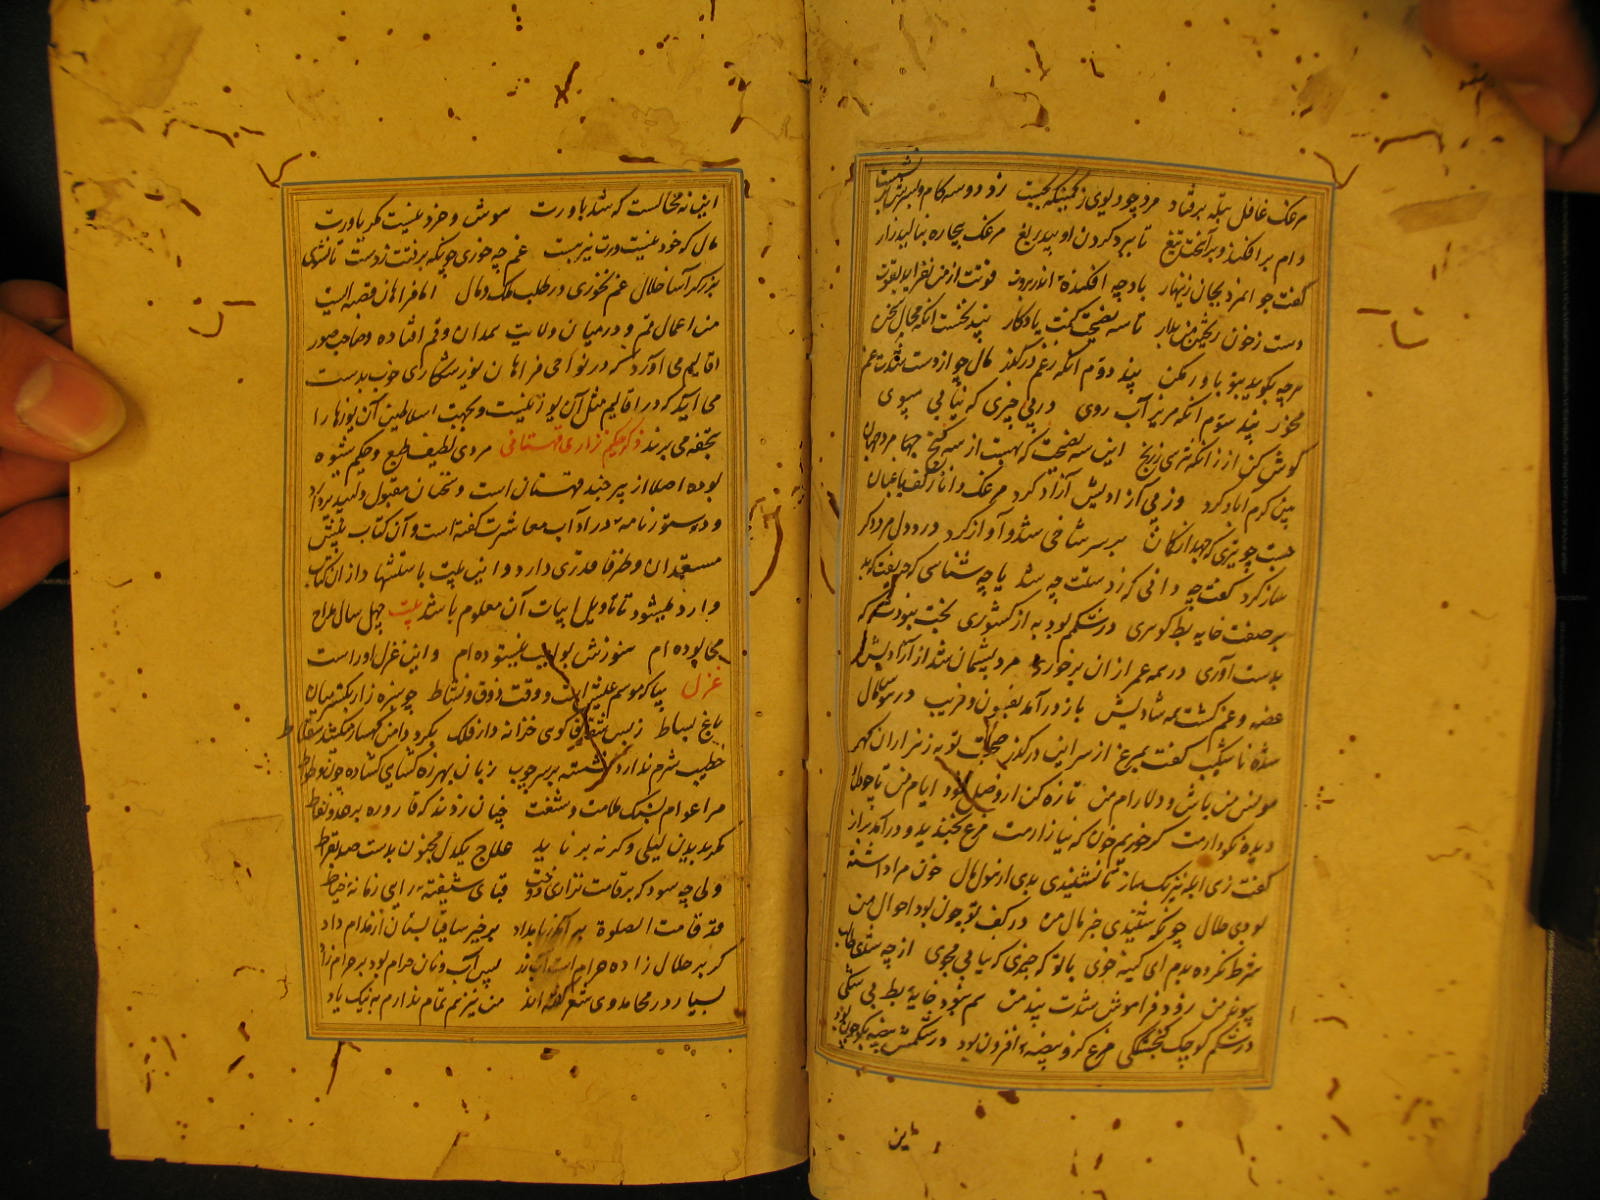 مرغک غافل بتله برفتاد مرد چو دیوی ز کمینگه بجست زود دو سه کام و بسرش
نشست
دام برافکند و برآهخت تیغ تا ببرد گردن او بیدریغ مرغک بیچاره بنالید زار
گفت جوانمرد بجان زینهار یاد چه افکنده اندر برون قوتت از من نفزاید بقوت
دست ز خون ریختن من بدار تا سه نصیحت کنمت یادکار پند نخست آنکه محال سخن
هرچه بگویند تو باور مکن پند دوم آنکه ز غم در گذر مال چو از دست شدت غم
مخور پند سوم آنکه مریز آب روی در پی چیزی که نیابی مپوی
گوش کن از زانکه نرسی ز رنج این سه نصیحت که بهست از سه گنج مرد جهان
بین کرم آباد کرد وز پی آزادیش آزاد کرد مرغک دانا ز کف باغبان
جست چو تیری که جهد از کمان بر سر شاخی شد و آواز کرد در دل مرد دگر
ساز کرد گفت چه دانی که ز دستت چه شد یا چه شناسی که حریفت که بد
بر صفت خایه بط گوهری در شکمم بود به از کشوری بخت نبودت که
بدست آوری در همه عمر از ان برخوری مرد پشیمان شد از آزادیش
غصه و غم گشت همه شادیش باز درآمد بفسون و فریب در هوس مال
شده ناشکیب گفت بمرغ از سر این در گذر صحبت تو به ز هزاران گهر
مونس من باش و دلارام من تازه کن از وصل خود ایام من تا چو دل
دیده نکو دارمت گر خوریم خون که نیازارمت مرغ بخندید و درآمد براز
گفت زهی ابله نیرنگ ساز تا نشنیدی بدی از هول مال خون مرا داشته
بودی حلال چونکه شنیدی خبر مال من در کف تو چون بود احوال من
شرط نکرده بدم ای کینه جوی با تو که چیزی که نیابی مجوی از چه شدی طالب
پیوند من زود فراموش شدت پند من هم نبود خایه بط بی شکی
در شکم کوچک گنجشککی مرغ کزو بیضه افزون بود در شکمش بیضه بگو چون بود
این
این نه محالست که شد باورت هوش و خرد نیست مگر یاورت
مال که خود نیست ورت نیز هست غم چه خوری چونکه برفتت ز دست تا نشوی
بزرگر آسا خلال غم نخوری در طلب ملک و مال اما فراهان قصبه ایست
من اعمال قم و در میان ولایت همدان و قم افتاده و صاحب صور
اقالیم می آورد که در نواحی فراهان یوز شکاری خوب بدست
می آید که در اقالیم مثل آن یوز نیست و بجهت سلاطین آن یوزها را
بتحفه می برند ذکر حکیم نزاری قهستانی مردی لطیف طبع و حکیم شیوه
بوده اصلا از بیرجند قهستان است و سخنان مقبول و لمید برو دارد
و دستور نامه در آداب معاشرت گفته است و آن کتاب پیش
مستعدان و ظرفا قدری دارد و این بیت باستشهاد از ان کتاب
وارد میشود تا تاویل ابیات آن معلوم باشد بیت چهل سال مداح
می بوده ام هنوزش بواجب نستوده ام و این غزل اوراست
غزل بیا که موسم عیش است و وقت ذوق و نشاط چو سبزه زار بگستر میان
باغ بساط ز بس شقایق گوی خزانه دار فلک بگرد دامن کهسار میکشد سقلاط
خطیب شرم ندارد نشسته بر سر چوب زبان بهرزه گشای گشاده چون وطواط
مرا عوام بسنگ ملامت و شنعت چنان زدند که قاروره بر هدف نفاط
مگر بدیدن لیلی وگرنه بر ناید علاج یکدل مجنون بدست صد بقراط
ولی چه سود که بر قامت نزاری دوخت قبای شیفته رایی زمانه خیاط
قد قامت الصلوة برآمد بامداد برخیز ساقیا بستان از مدام داد
گر بر حلال زاده حرام است آب رز پس آب و نان حرام بود بر حرام زاد
بسیار در محامد وی شعر گفته اند من نیز هم تمام ندارم به نیک یاد